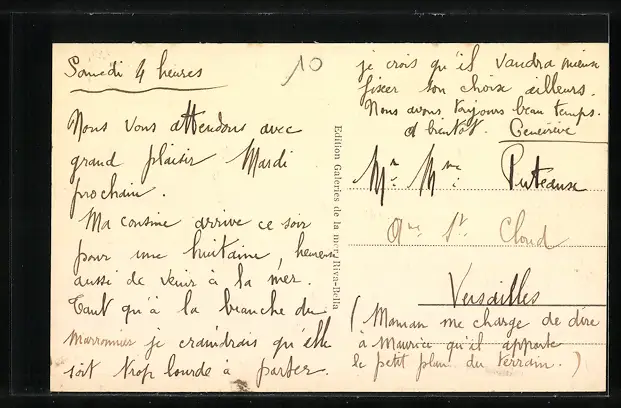 Samedi 4 heures
10
Nous vous attendons avec
grand plaisir Mardi
prochain.
Ma cousine arrive ce soir
pour une huitaine, heureuse
aussi de venir à la mer.
Tant qu'à la branche de
marronnier je craindrais qu'elle
soit trop lourde à porter.
je crois qu'il vaudra mieux
fixer son choix ailleurs.
Nous avons toujours beau temps.
à bientôt. Geneviève
Edition Galeries de la mer, Riva-Bella
Mr. Mme. Puteaux
Ave St. Cloud
Versailles
(Maman me charge de dire
à Maurice qu'il apporte
le petit plan du terrain.)